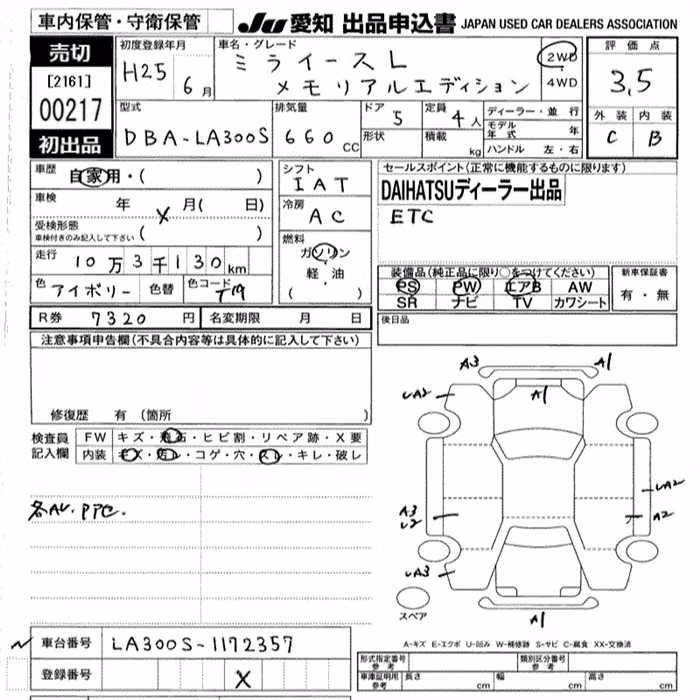 車内保管・守衛保管
JU 愛知 出品申込書 JAPAN USED CAR DEALERS ASSOCIATION
売切
[2161]
00217
初出品
初度登録年月
H25 6月
車名・グレード
ミライースL
メモリアルエディション
2WD
4WD
評価点
3,5
外装 内装
C B
型式
DBA-LA300S
排気量
660 CC
ドア
5
形状
定員
4人
積載
kg
ディーラー・並 行
モデル年式 年
ハンドル 左・右
車歴
自家用・( )
車検
年 X 月( 日)
受検形態
車検付きのみ記入して下さい ( )
走行
10万3千130km
色
アイボリー 色替
色コード
T19
シフト
IAT
冷房
AC
燃料
ガソリン
軽・油
( )
セールスポイント(正常に機能するものに限ります)
DAIHATSUディーラー出品
ETC
装備品(純正品に限り○をつけてください)
PS PW エアB AW
SR ナビ TV カワシート
新車保証書
有・無
R券 7320 円 名変期限 月 日
後日品
注意事項申告欄(不具合内容等は具体的に記入して下さい)
修復歴 有 (箇所 )
検査員
記入欄
FW キズ・飛石・ヒビ割・リペア跡・X要
内装 キズ・汚レ・コゲ・穴・スレ・キレ・破レ
各AU. PPC.
A3 A1
UA2 A1
UA2
A3
U2 A2
UA3
スペア
A1
A-キズ E-エクボ U-凹み W-補修跡 S-サビ C-腐食 XX-交換済
車台番号 LA300S-1172357
登録番号 X
形式指定番号
参考
類別区分番号
参考
車庫証明用
参考
長さ cm 幅 cm 高さ cm